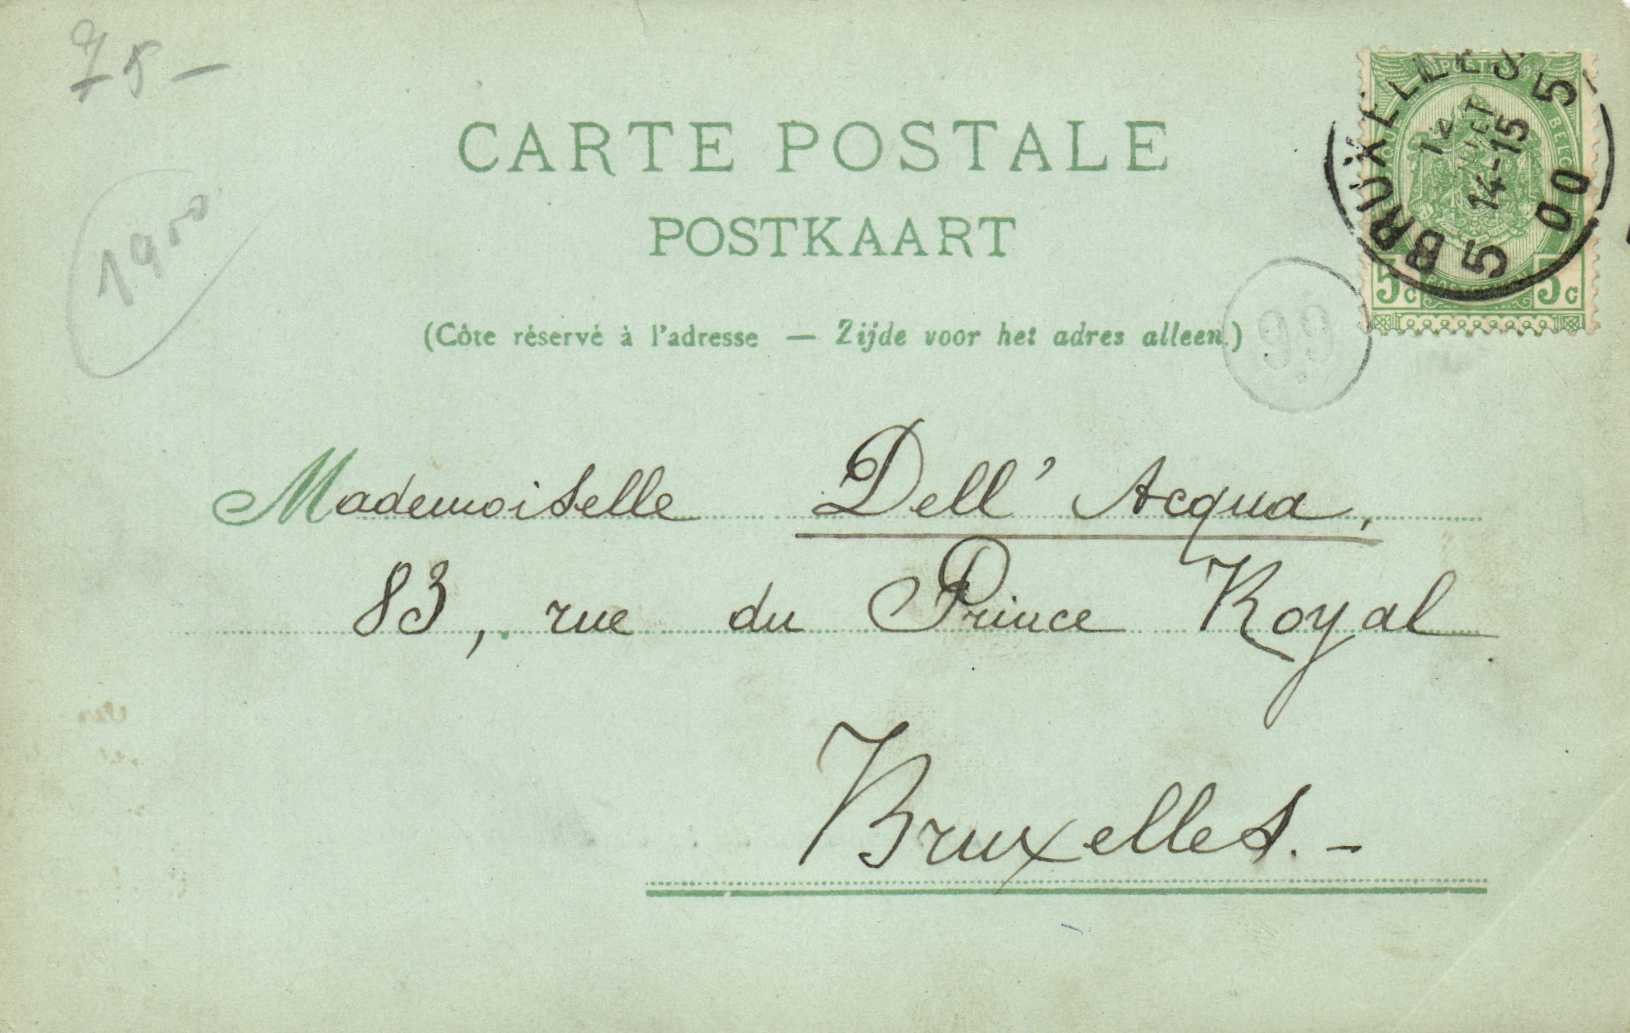 75 –
CARTE POSTALE
POSTKAART
1900
(Côte réservé à l'adresse — Zijde voor het adres alleen.)
BRUXELLES 5
12
JUILLET
14-15
5
00
5c 5c
99
Mademoiselle Dell' Acqua,
83, rue du Prince Royal
Bruxelles. –